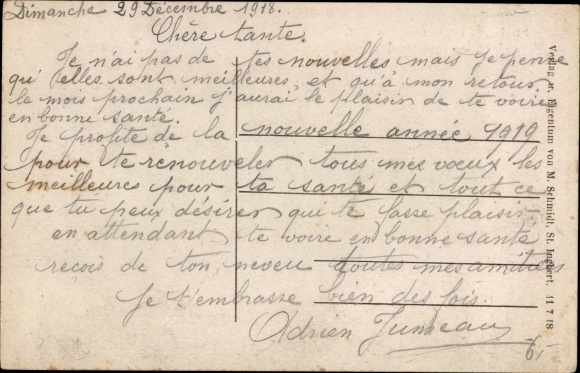 Dimanche 29 Décembre 1918.
Chère tante.
Je n'ai pas de tes nouvelles mais je pense
qu'elles sont meilleures et qu'à mon retour
le mois prochain j'aurai le plaisir de te voire
en bonne santé.
Je profite de la nouvelle année 1919
pour te renouveler tous mes vœux les
meilleures pour ta santé et tout ce
que tu peux désirer qui te fasse plaisir
en attendant te voire en bonne santé
recois de ton neveu toutes mes amitiés
Je t'embrasse bien des fois.
Adrien Jumeau
6.-
Verlag u. Eigentum von M. Schmidt, St. Ingbert. 11 7 18